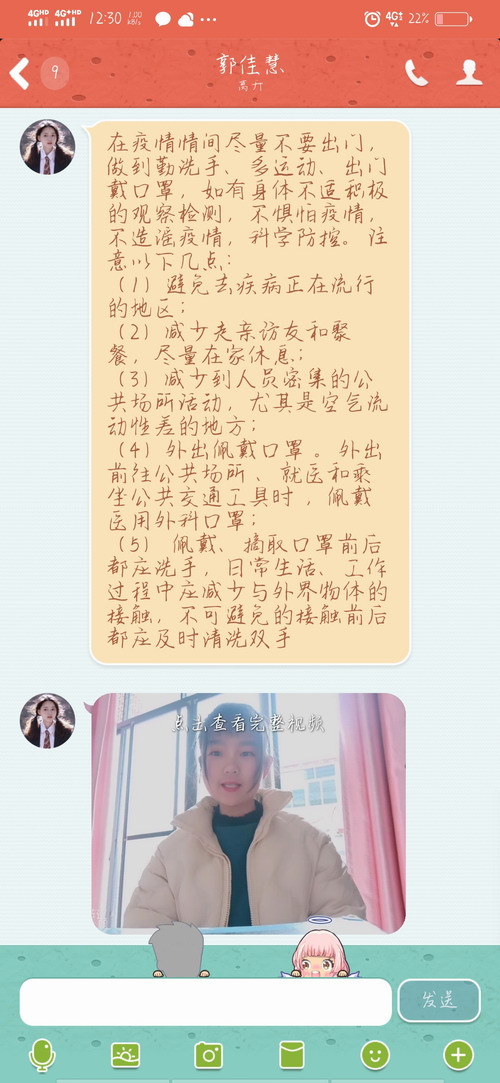 4GHD 4G+HD 12:30 1.00 KB/s 4G 22%
9
郭佳慧
在疫情情间尽量不要出门，
做到勤洗手、多运动、出门
戴口罩，如有身体不适积极
的观察检测，不惧怕疫情，
不造谣疫情，科学防控。注
意以下几点：
（1）避免去疾病正在流行
的地区；
（2）减少走亲访友和聚
餐，尽量在家休息；
（3）减少到人员密集的公
共场所活动，尤其是空气流
动性差的地方；
（4）外出佩戴口罩。外出
前往公共场所、就医和乘
坐公共交通工具时，佩戴
医用外科口罩；
（5）佩戴、摘取口罩前后
都应洗手，日常生活、工作
过程中应减少与外界物体的
接触，不可避免的接触前后
都应及时清洗双手
点击查看完整视频
发送